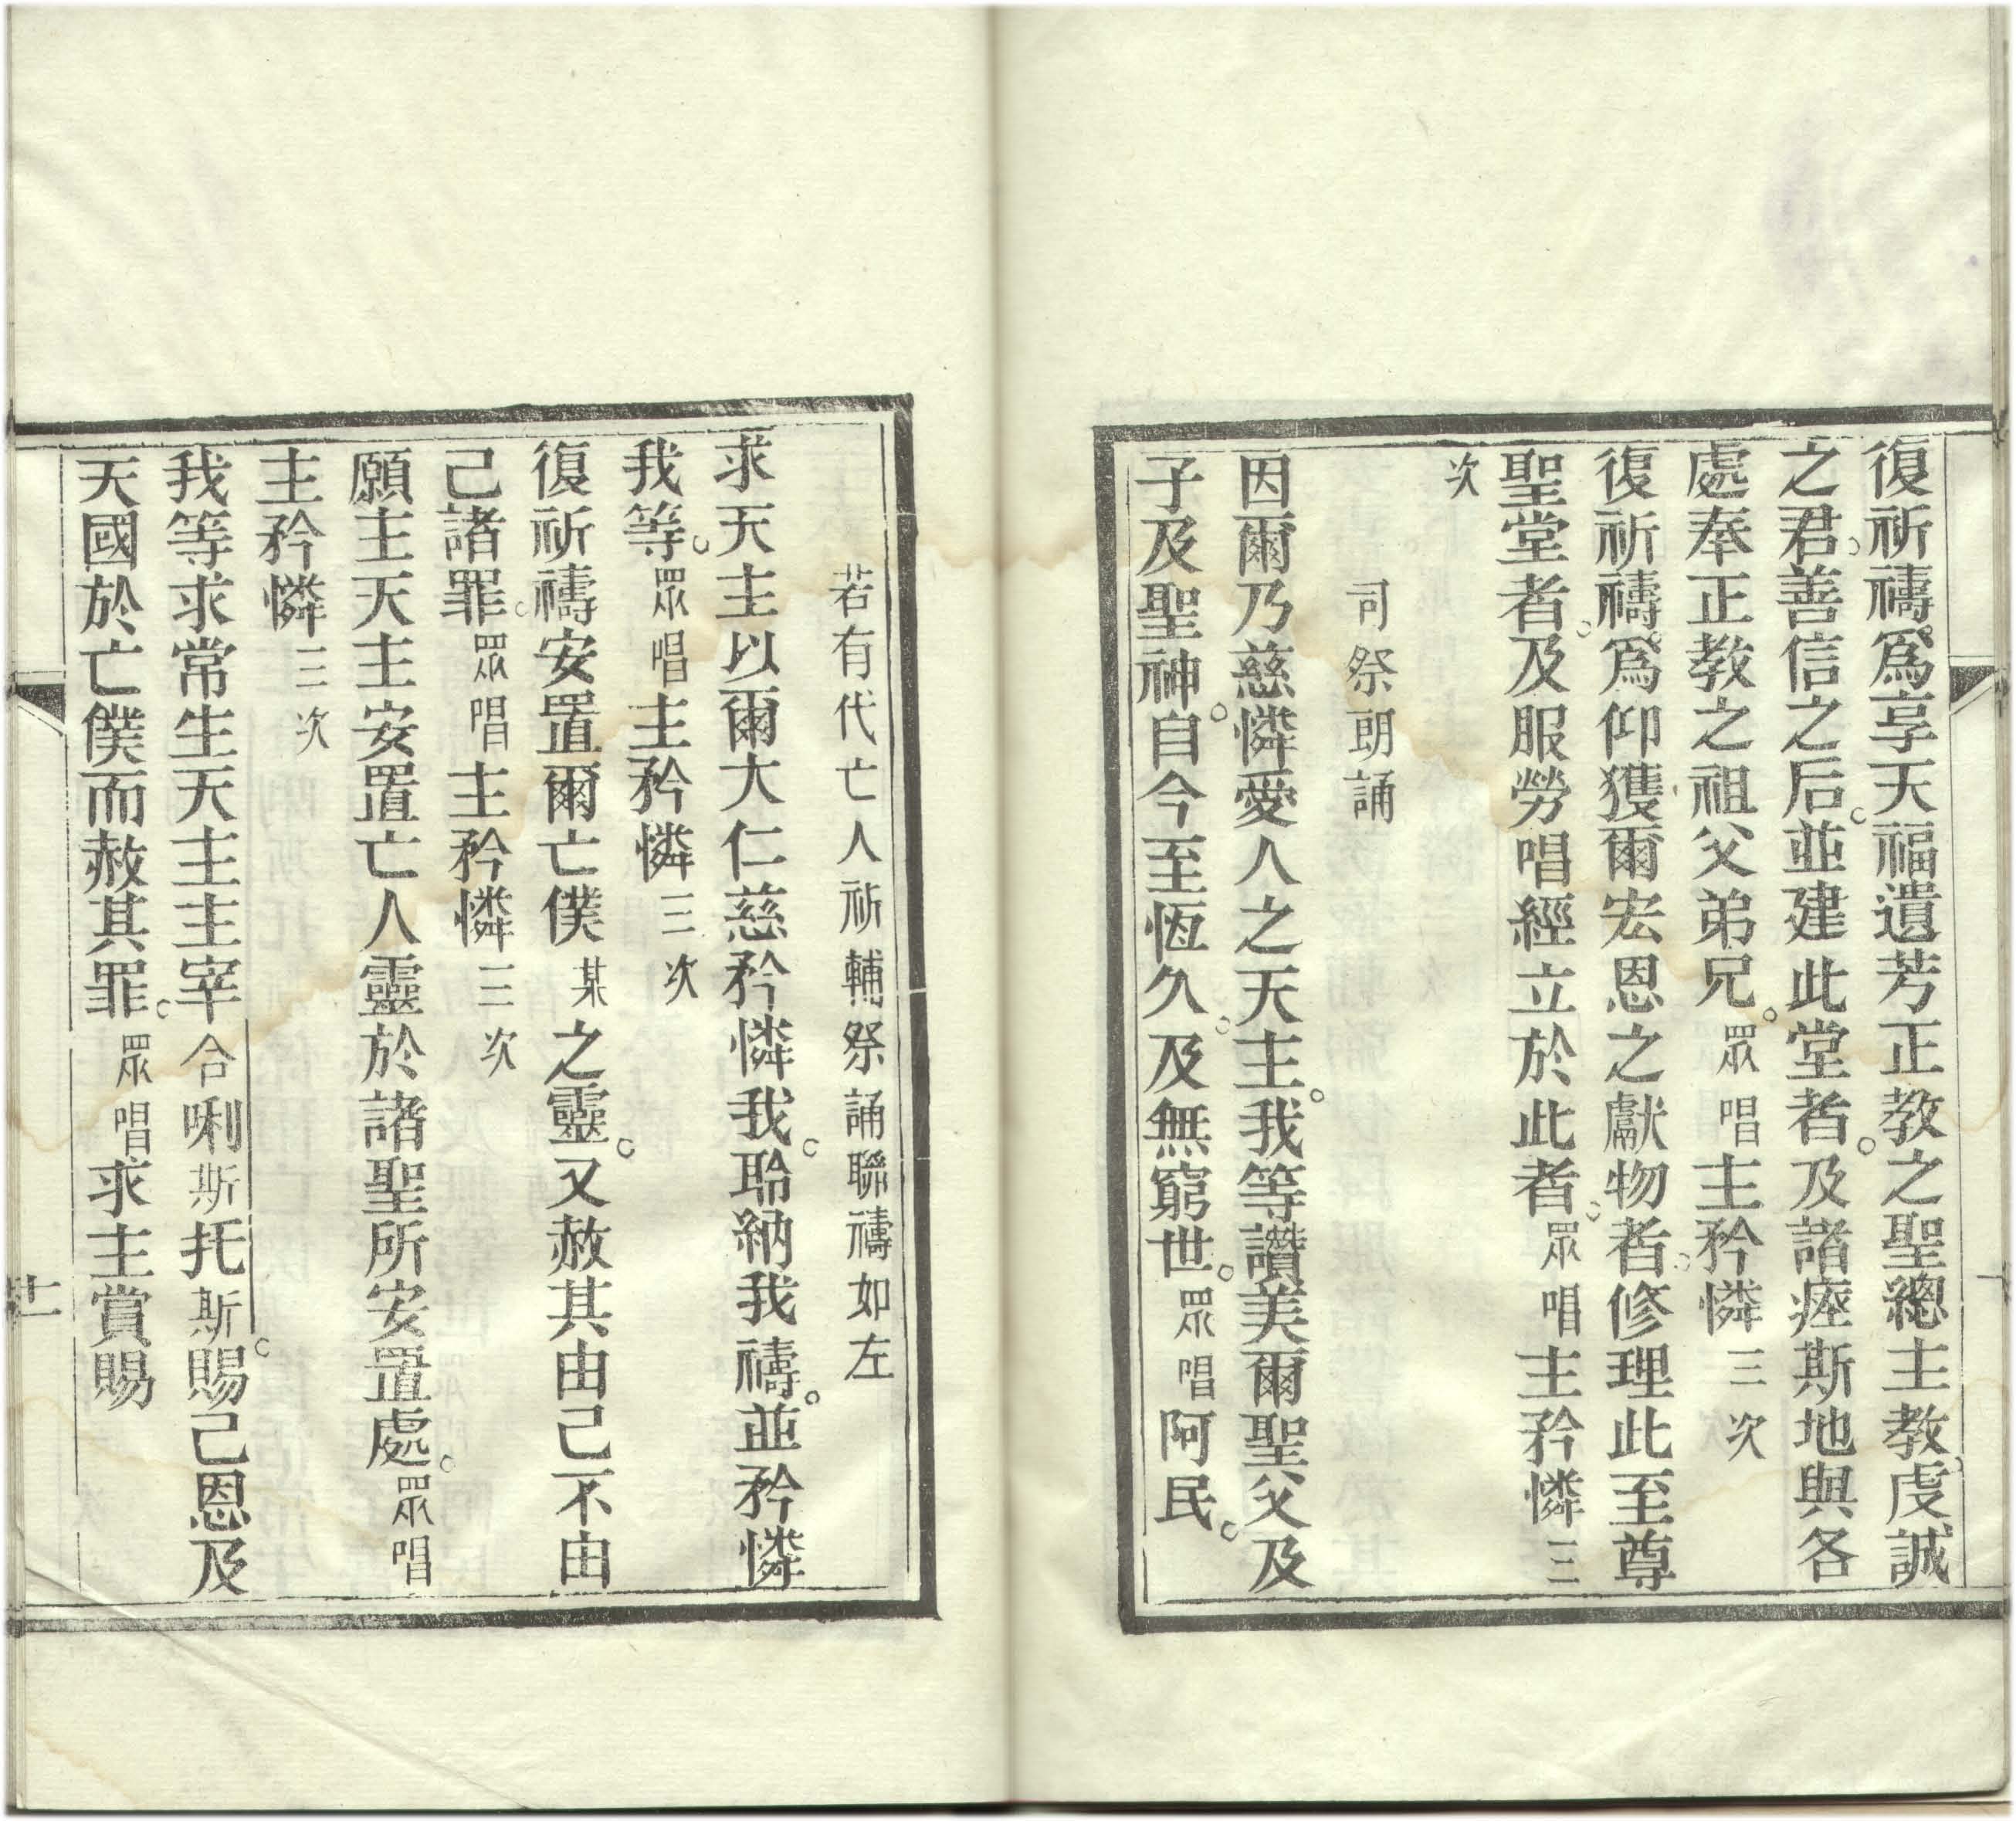 復祈禱。爲享天福遺芳正教之聖總主教、虔誠
之君。善信之后。並建此堂者。及諸瘞斯地與各
處奉正教之祖父弟兄。眾唱主矜憐三次
復祈禱。爲仰獲爾宏恩之獻物者。修理此至尊
聖堂者。及服勞唱經立於此者。眾唱主矜憐三
次
司祭朗誦
因爾乃慈憐愛人之天主。我等讚美爾聖父及
子及聖神。自今至恆久。及無窮世。眾唱阿民。
若有代亡人祈輔祭誦聯禱如左
求天主以爾大仁慈矜憐我。聆納我禱。並矜憐
我等。眾唱主矜憐三次
復祈禱安置爾亡僕某之靈。又赦其由己不由
己諸罪。眾唱主矜憐三次
願主天主安置亡人靈於諸聖所安置處。眾唱
主矜憐三次
我等求常生天主主宰合唎斯托斯。賜己恩及
天國於亡僕而赦其罪。眾唱求主賞賜
十一